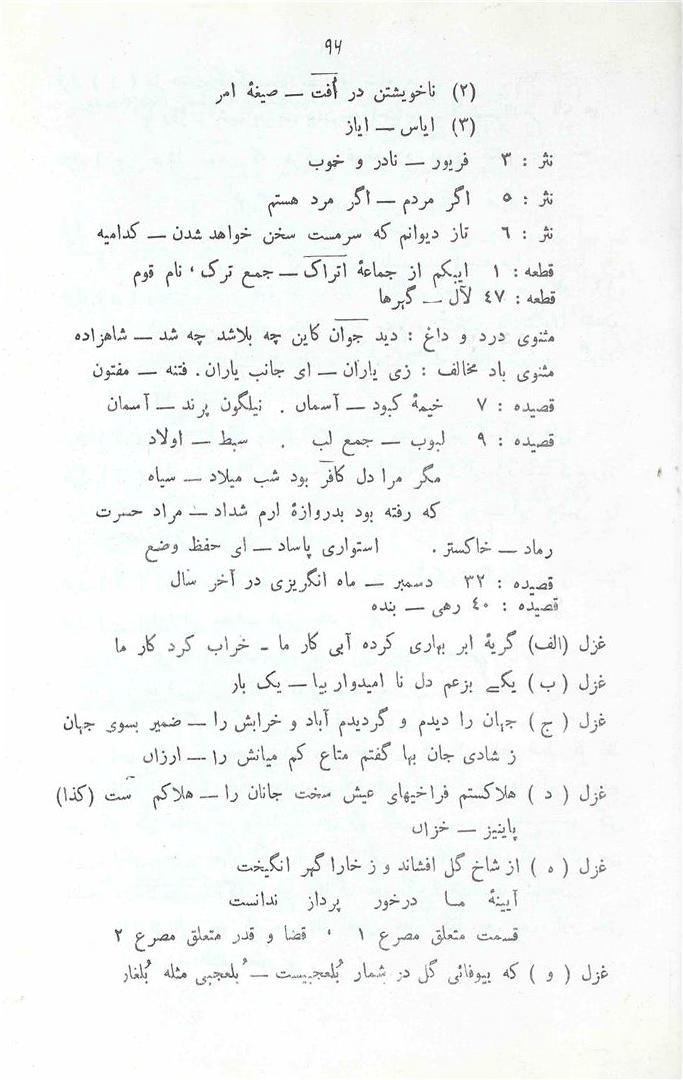 ۹۴
(۲) ناخویشتن در اُفت — صیغهٔ امر
(۳) ایاس — ایاز
نثر : ۳ فریور — نادر و خوب
نثر : ۵ اگر مردم — اگر مرد هستم
نثر : ٦ تاز دیوانم که سرمست سخن خواهد شدن — کدامیه
قطعه : ۱ ایبکم از جماعهٔ اتراک — جمع ترک ، نام قوم
قطعه : ٤۷ لآل — گهرها
مثنوی درد و داغ : دید جوان کاین چه بلاشد چه شد — شاهزاده
مثنوی باد مخالف : زی یاران — ای جانب یاران . فتنه — مفتون
قصیده : ۷ خیمهٔ کبود — آسماں . نیلگون پرند — آسمان
قصیده : ۹ لبوب — جمع لب . سبط — اولاد
مگر مرا دل کافر بود شب میلاد — سیاه
که رفته بود بدروازهٔ ارم شداد — مراد حسرت
رماد — خاکستر . استواری پاساد — ای حفظ وضع
قصیده : ۳۲ دسمبر — ماه انگریزی در آخر سال
قصیده : ٤۰ رهی — بنده
غزل (الف) گریهٔ ابر بهاری کرده آبی کار ما - خراب کرد کار ما
غزل ( ب ) یکے بزعم دل نا امیدوار بیا — یک بار
غزل ( ج ) جهان را دیدم و گردیدم آباد و خرابش را — ضمیر بسوی جهان
ز شادی جان بها گفتم متاع کم میانش را — ارزاں
غزل ( د ) هلاکستم فراخیهای عیش سخت جانان را — هلاکم ست (کذا)
پاینیز — خزاں
غزل ( ه ) از شاخ گل افشاند و ز خارا گهر انگیخت
آیینهٔ ما درخور پرداز ندانست
قسمت متعلق مصرع ۱ ، قضا و قدر متعلق مصرع ۲
غزل ( و ) که بیوفائی گل در شمار بُلعجبیست — بُلعجبی مثله بُلغار